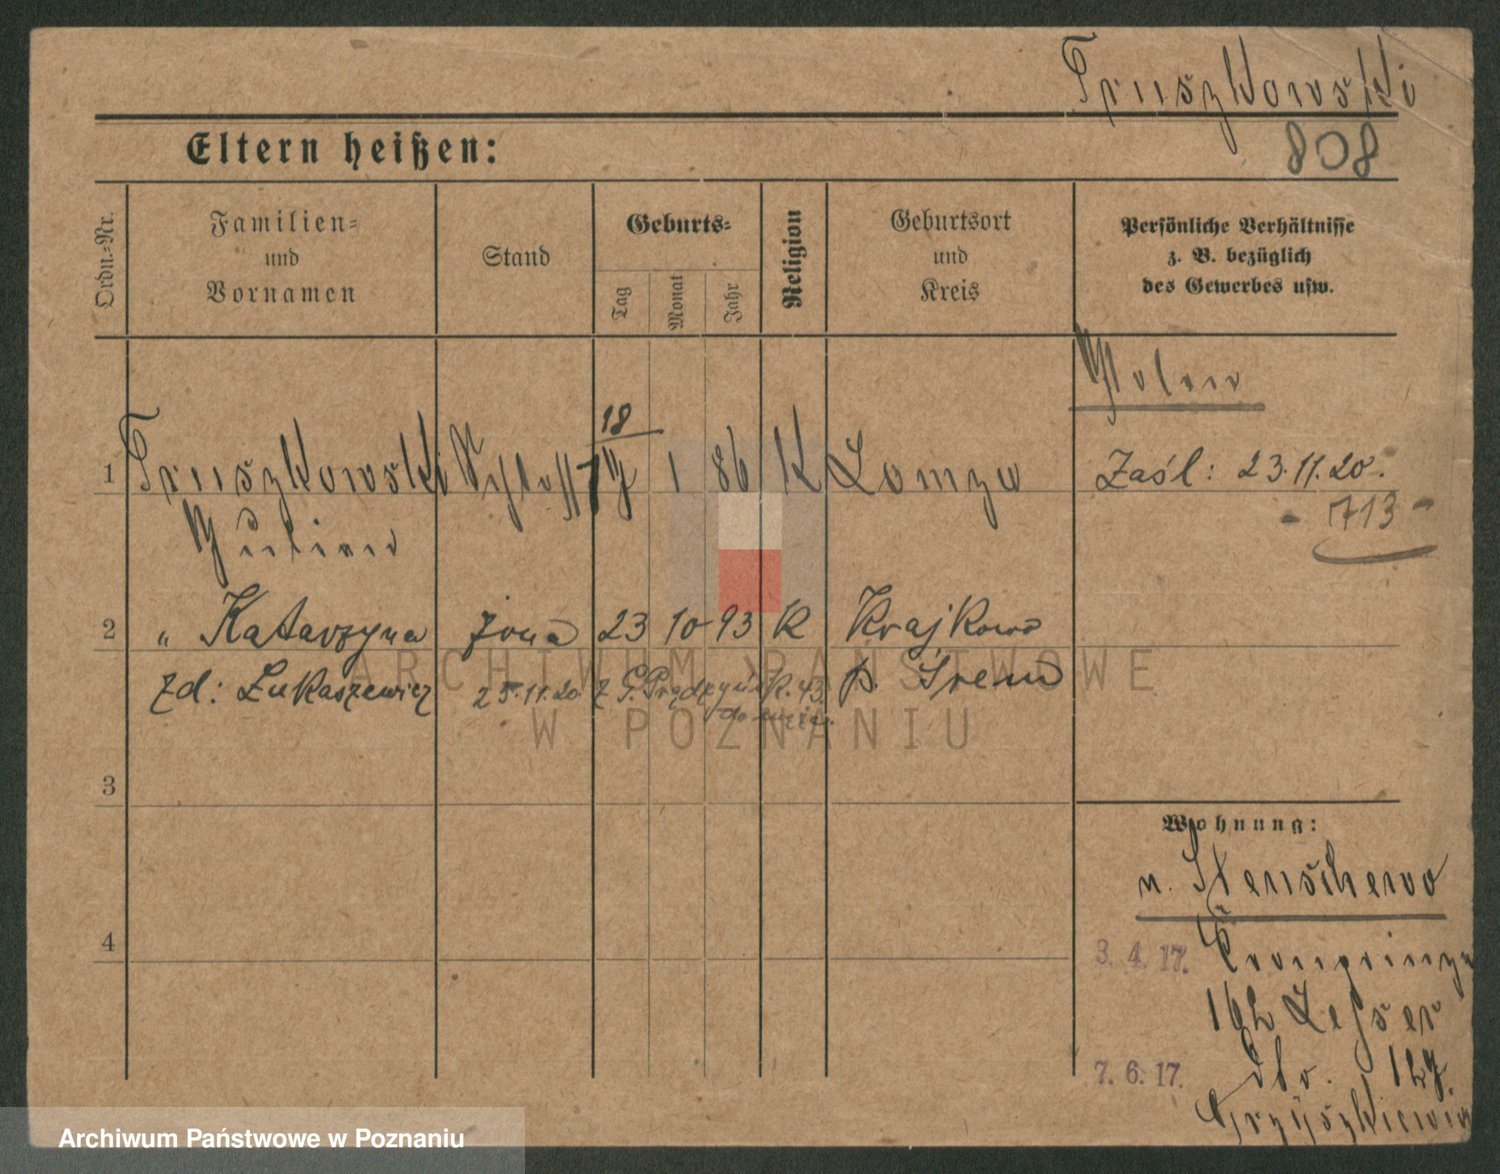 Truszkowski
808
Eltern heißen:
Ordn.-Nr.
Familien-
und
Vornamen
Stand
Geburts-
Tag
Monat
Jahr
Religion
Geburtsort
und
Kreis
Persönliche Verhältnisse
z. B. bezüglich
des Gewerbes usw.
Polen
18
1 Truszkowski 1 86 K Lomza
Zaśl: 23.11.20.
- 713 -
Julian
2 " Katarzyna żona 23 10 93 K Krajkowo
zd: Łukaszewicz 25.11.20. p. Śrem
3
4
Wohnung:
n. Stenschewo
3. 4. 17. Kronprinz
162 Lesser
7. 6. 17. dto. 127
Grzyszkiewicz
ARCHIWUM PAŃSTWOWE
W POZNANIU
Archiwum Państwowe w Poznaniu